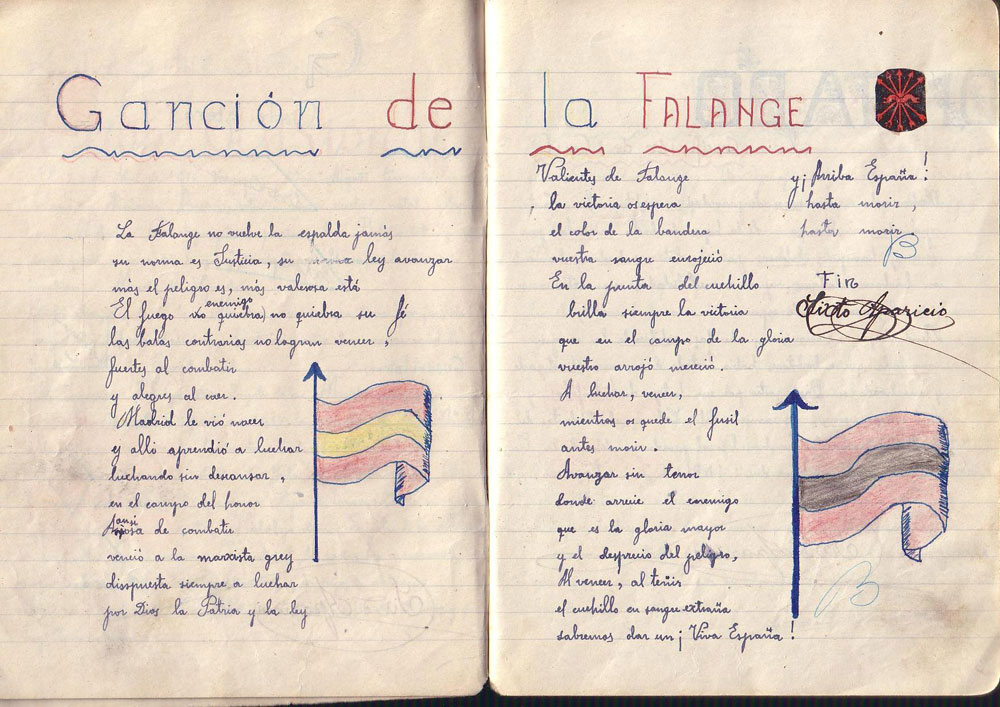 Canción de la FALANGE
La Falange no vuelve la espalda jamás
su norma es Justicia, su ley avanzar
más el peligro es, más valerosa está
El fuego enemigo no quiebra no quiebra su fé
las balas contrarias no logran vencer,
fuertes al combatir
y alegres al caer.
Madrid le vió nacer
y alli aprendió a luchar
luchando sin descansar,
en el campo del honor
Ansiosa de combatir
venció a la marxista grey
dispuesta siempre a luchar
por Dios la Patria y la ley
Valientes de Falange
la victoria os espera
el color de la bandera
vuestra sangre enrojeció
En la punta del cuchillo
brilla siempre la victoria
que en el campo de la gloria
vuestro arrojó mereció.
A luchar, vencer,
mientras os quede el fusil
antes morir.
Avanzar sin temor
donde arrecie el enemigo
que es la gloria mayor
y el desprecio del peligro,
Al vencer, al teñir
el cuchillo en sangre extraña
sabremos dar un ¡Viva España!
y ¡Arriba España!
hasta morir,
hasta morir.
B
Fin
Sixto Aparicio
B